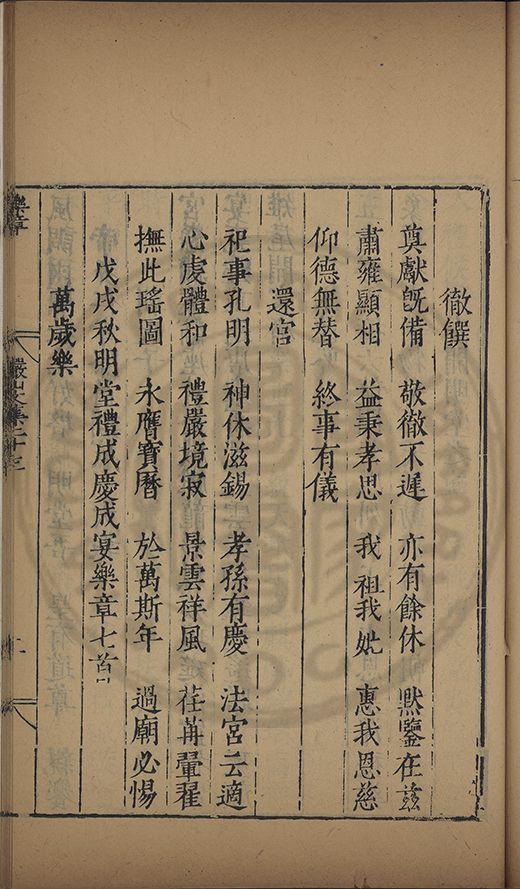 徹饌
奠獻旣備　敬徹不遲　亦有餘休　默鑒在兹
肅雍顯相　益秉孝思　我祖我妣　惠我恩慈
仰德無替　終事有儀
還宮
祀事孔明　神休滋錫　孝孫有慶　法宮云適
心虔體和　禮嚴境寂　景雲祥風　荏苒翬翟
撫此瑤圖　永膺寶曆　於萬斯年　過廟必惕
戊戌秋明堂禮成慶成宴樂章七首
萬歲樂